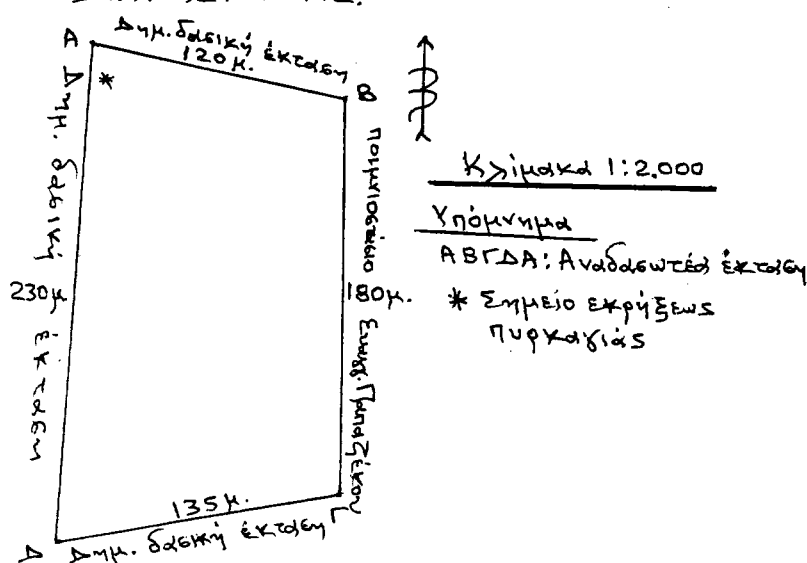 Α
Δημ. δασική έκταση
120 μ.
Β
Δημ. δασική έκταση
230 μ.
ποιμνιοστάσιο
180 μ.
Γ
135 μ.
Δημ. δασική έκταση
Δ
Κλίμακα 1:2.000
Υπόμνημα
ΑΒΓΔΑ: Αναδασωτέα έκταση
* Σημείο εκρήξεως
πυρκαγιάς